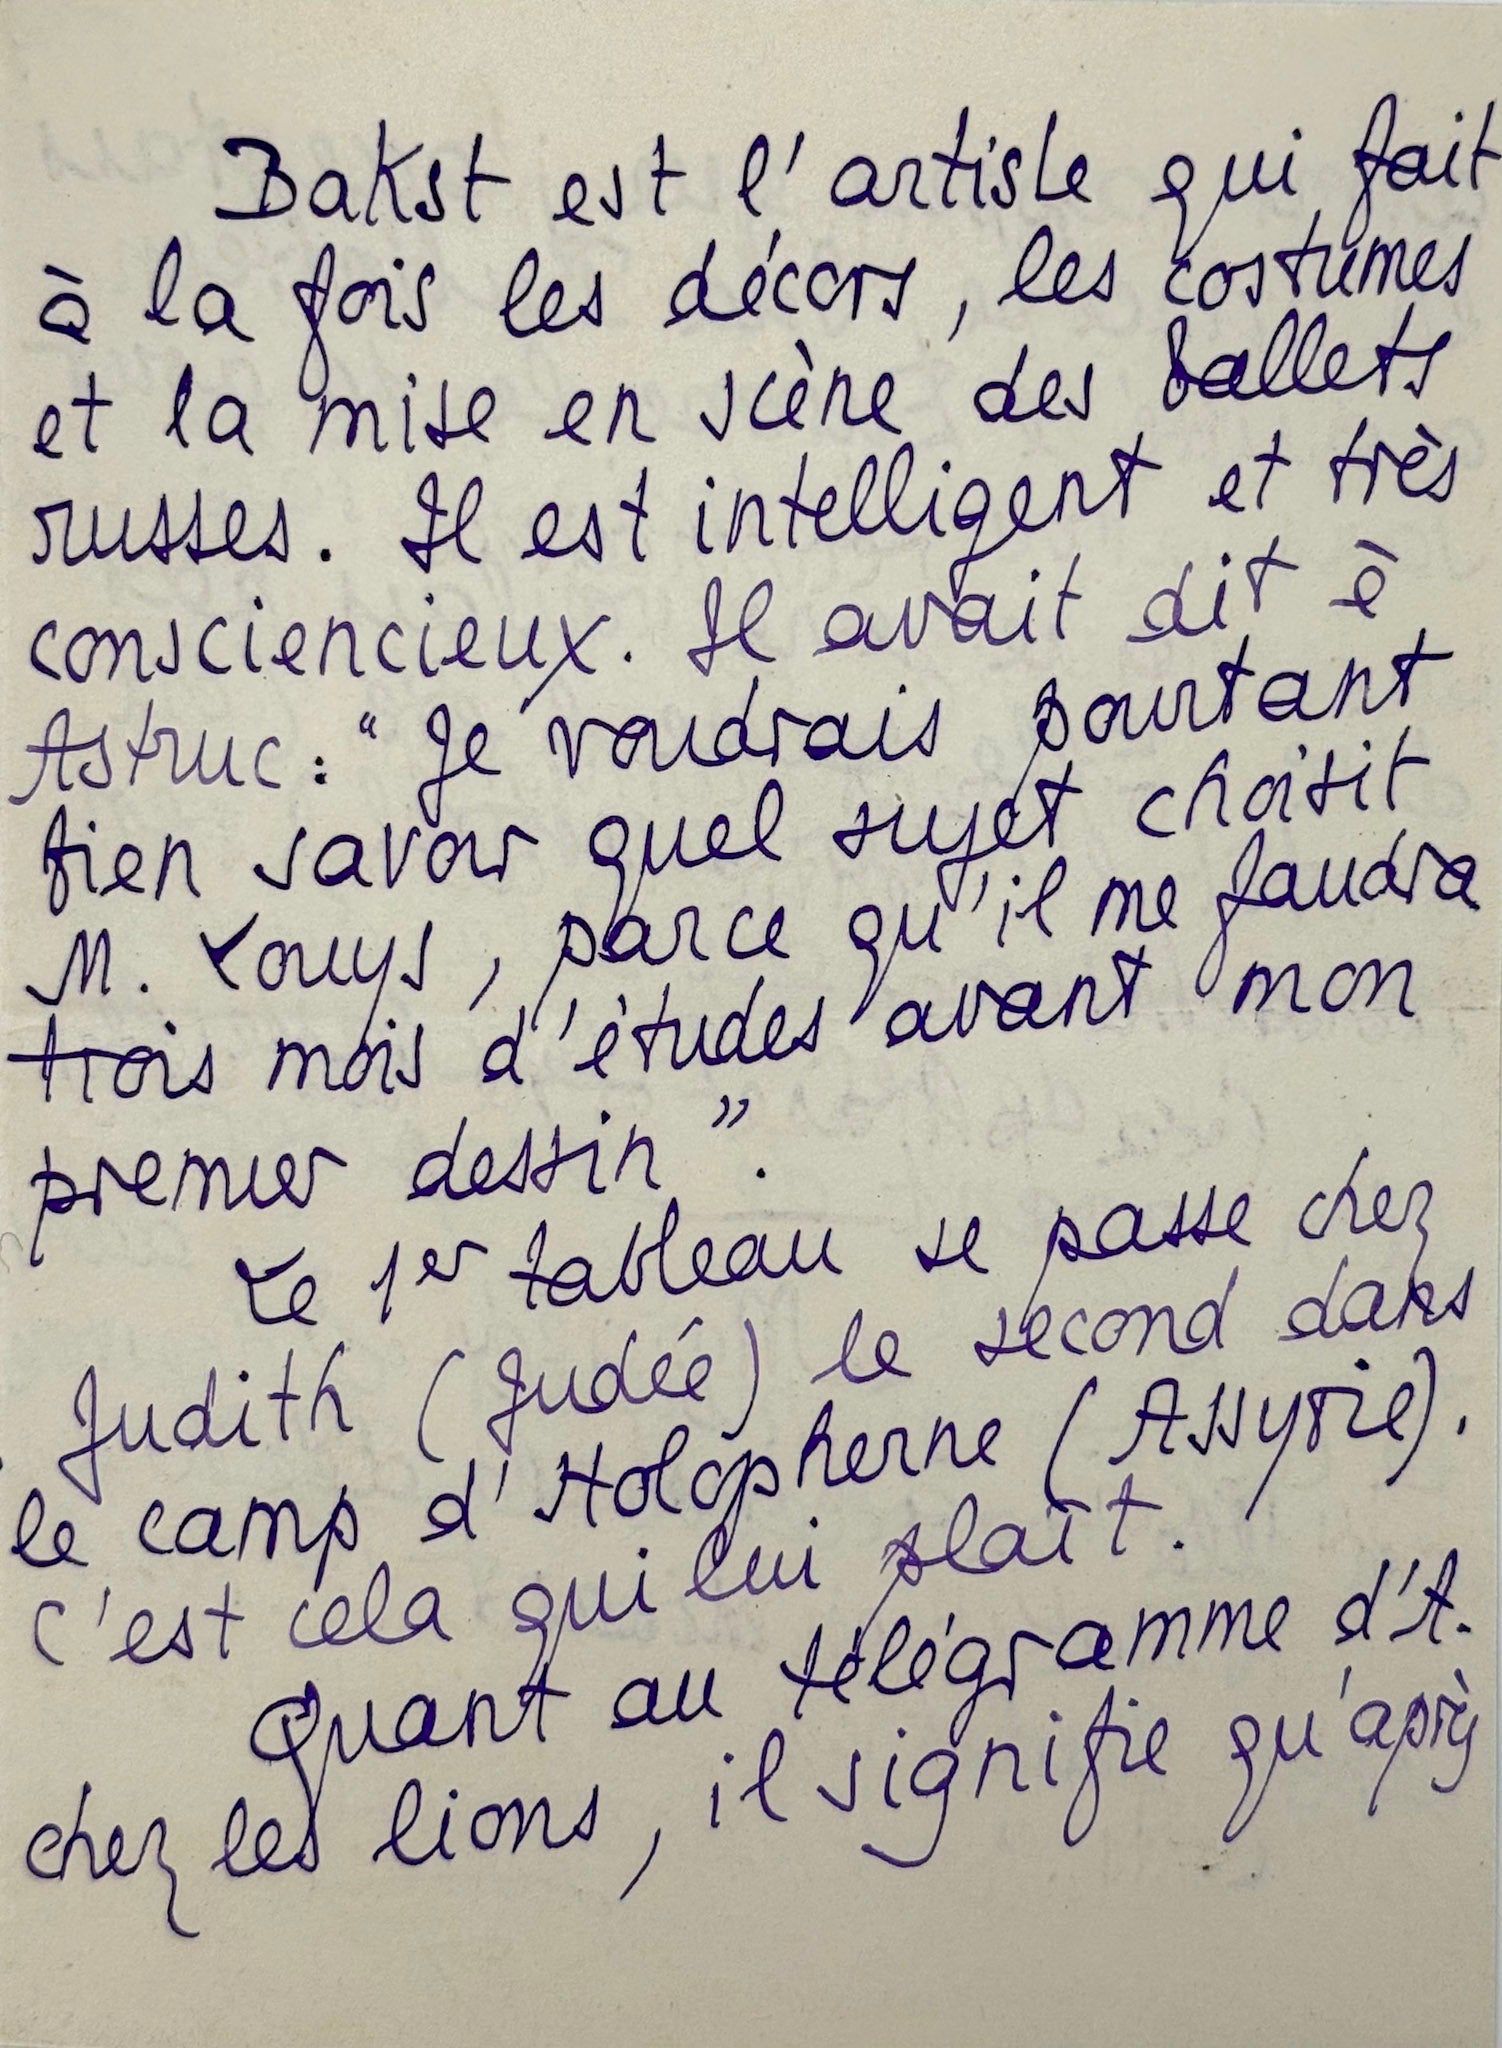 Bakst est l'artiste qui fait
à la fois les décors, les costumes
et la mise en scène des ballets
russes. Il est intelligent et très
consciencieux. Il avait dit à
Astruc : "Je voudrais pourtant
bien savoir quel sujet choisit
M. Louys, parce qu'il me faudra
trois mois d'études avant mon
premier dessin".
Le 1er tableau se passe chez
Judith (Judée) le second dans
le camp d'Holopherne (Assyrie).
C'est cela qui lui plaît.
Quant au télégramme d'A.
chez les lions, il signifie qu'après